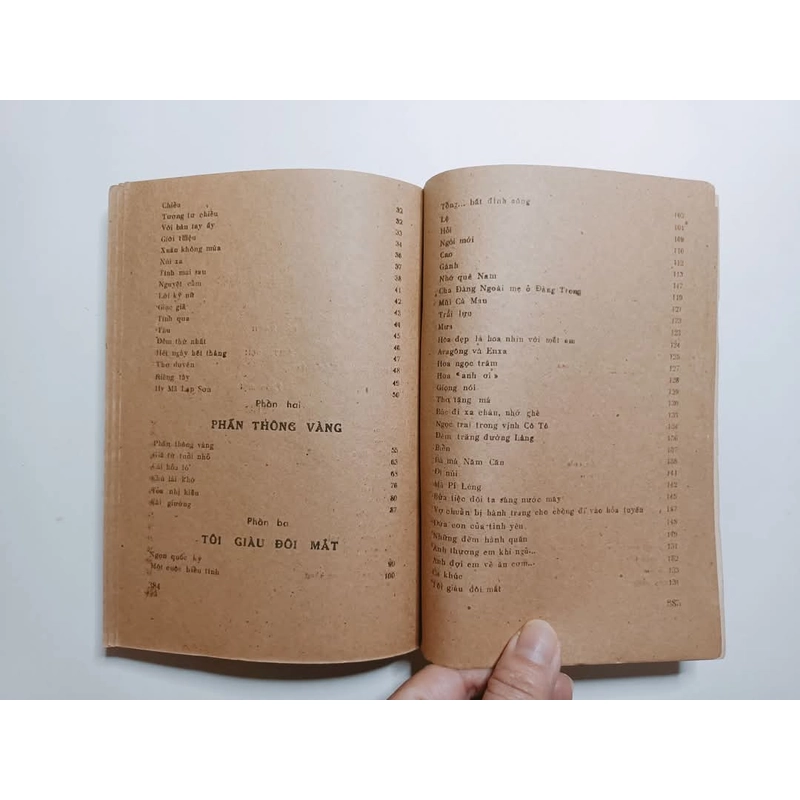 Chiều 32
Tương tư chiều 32
Với bàn tay ấy 33
Giới thiệu 34
Xuân không mùa 36
Núi xa 37
Tình mai sau 38
Nguyệt cầm 41
Lời kỹ nữ 42
Giục giã 43
Tình qua 44
Thu 45
Đêm thứ nhất 46
Hết ngày hết tháng 46
Thơ duyên 48
Riêng tây 49
Hy Mã Lạp Sơn 50
Phần hai
PHẤN THÔNG VÀNG
Phấn thông vàng 55
Giã từ tuổi nhỏ 63
Cái hỏa lò 68
Chú lái khờ 76
Tỏa nhị kiều 80
Cái giường 87
Phần ba
TÔI GIÀU ĐÔI MẮT
Ngọn quốc kỳ 90
Một cuộc biểu tình 100
Tổng... bất đình công
Lệ
Hỏi 101
Ngói mới 109
Cao 110
Gánh 112
Nhớ quê Nam 115
Cha Đàng Ngoài mẹ ở Đàng Trong 117
Mũi Cà Mau 119
Trải lụa 121
Mưa 123
Hoa đẹp là hoa nhìn với mắt em 124
Aragông và Enxa 126
Hoa ngọc trâm 127
Hoa "anh ơi" 128
Giọng nói 129
Thơ tặng má
Bác đi xa chân, nhớ ghê
Ngọc trai trong vịnh Cô Tô 135
Đêm trăng đường Láng 136
Biển 137
Bà má Năm Căn
Đi núi 141
Mã Pí Lèng 142
Bữa tiệc đôi ta sáng nước mây 145
Vợ chuẩn bị hành trang cho chồng đi vào hỏa tuyến 147
Đứa con của tình yêu 148
Những đêm hành quân
Anh thương em khi ngủ... 151
Anh đợi em về ăn cơm...
Ca khúc
Tôi giàu đôi mắt